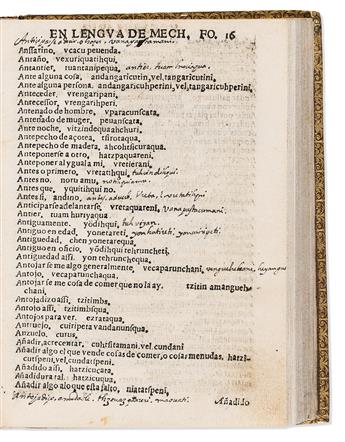 EN LENGVA DE MECH. FO. 16
Anssarino, vcacu peuenda.
Antaño, vexuriquatihqui.
Antantier, tuantanipequa,
Ante alguna cosa, andangaricutin, vel, tangaricutini.
Ante alguna persona. andangaricuhperini, vel, tangaricuhperini.
Anteceder, vrengaripani.
Antecessor, vrengarihperi.
Antenado de hombre, vparacunscata.
Antenado de muger, peuanscata.
Ante noche, vitzindequahchuri.
Antepecho de açotea, tsirotaqua.
Antepecho de madera, ahcohsicuraqua.
Anteponerse a otro, hatzpaquareni.
Anteponer al ygual a mi, vretierani.
Antes o primero, vretatihqui,
Antes no. noru amu,
Antes que, yquitihqui no.
Antes si, andino,
Anticiparse a delantarse, vretaquareni,
Antier, tuan huryaqua.
Antiguamente, yòdihqui,
Antiguo en edad, yonetareti,
Antiguedad, chen yonetarequa.
Antiguo en officio, yòdihqui tehruncheti.
Antiguedad assi, yon tehrunchequa.
Antojar se me algo generalmente, vecaparunchani,
Antojo, vecaparunchaqua.
Antojar se me cosa de comer que no la ay. tzitin amangueh-
chani,
Antojadizo assi, tzitimbs.
Antojo assi, tzitimbsqua.
Antojos para ver. ezrataqua.
Antruejo, cuiripera vandanunsqua.
Anzuelo, curus,
Añadir, acrecentar, cuhtsitamani, vel, cundani
Añadir algo el que vende cosas de comer, o cosas menudas, hatzi-
cutspeni, vel, cundatspeni.
Añadido assi, hatzicucata.
Añadidura tal. hatzicuqua.
Añadir algo alo que esta falto, niatatspeni,
Añadido